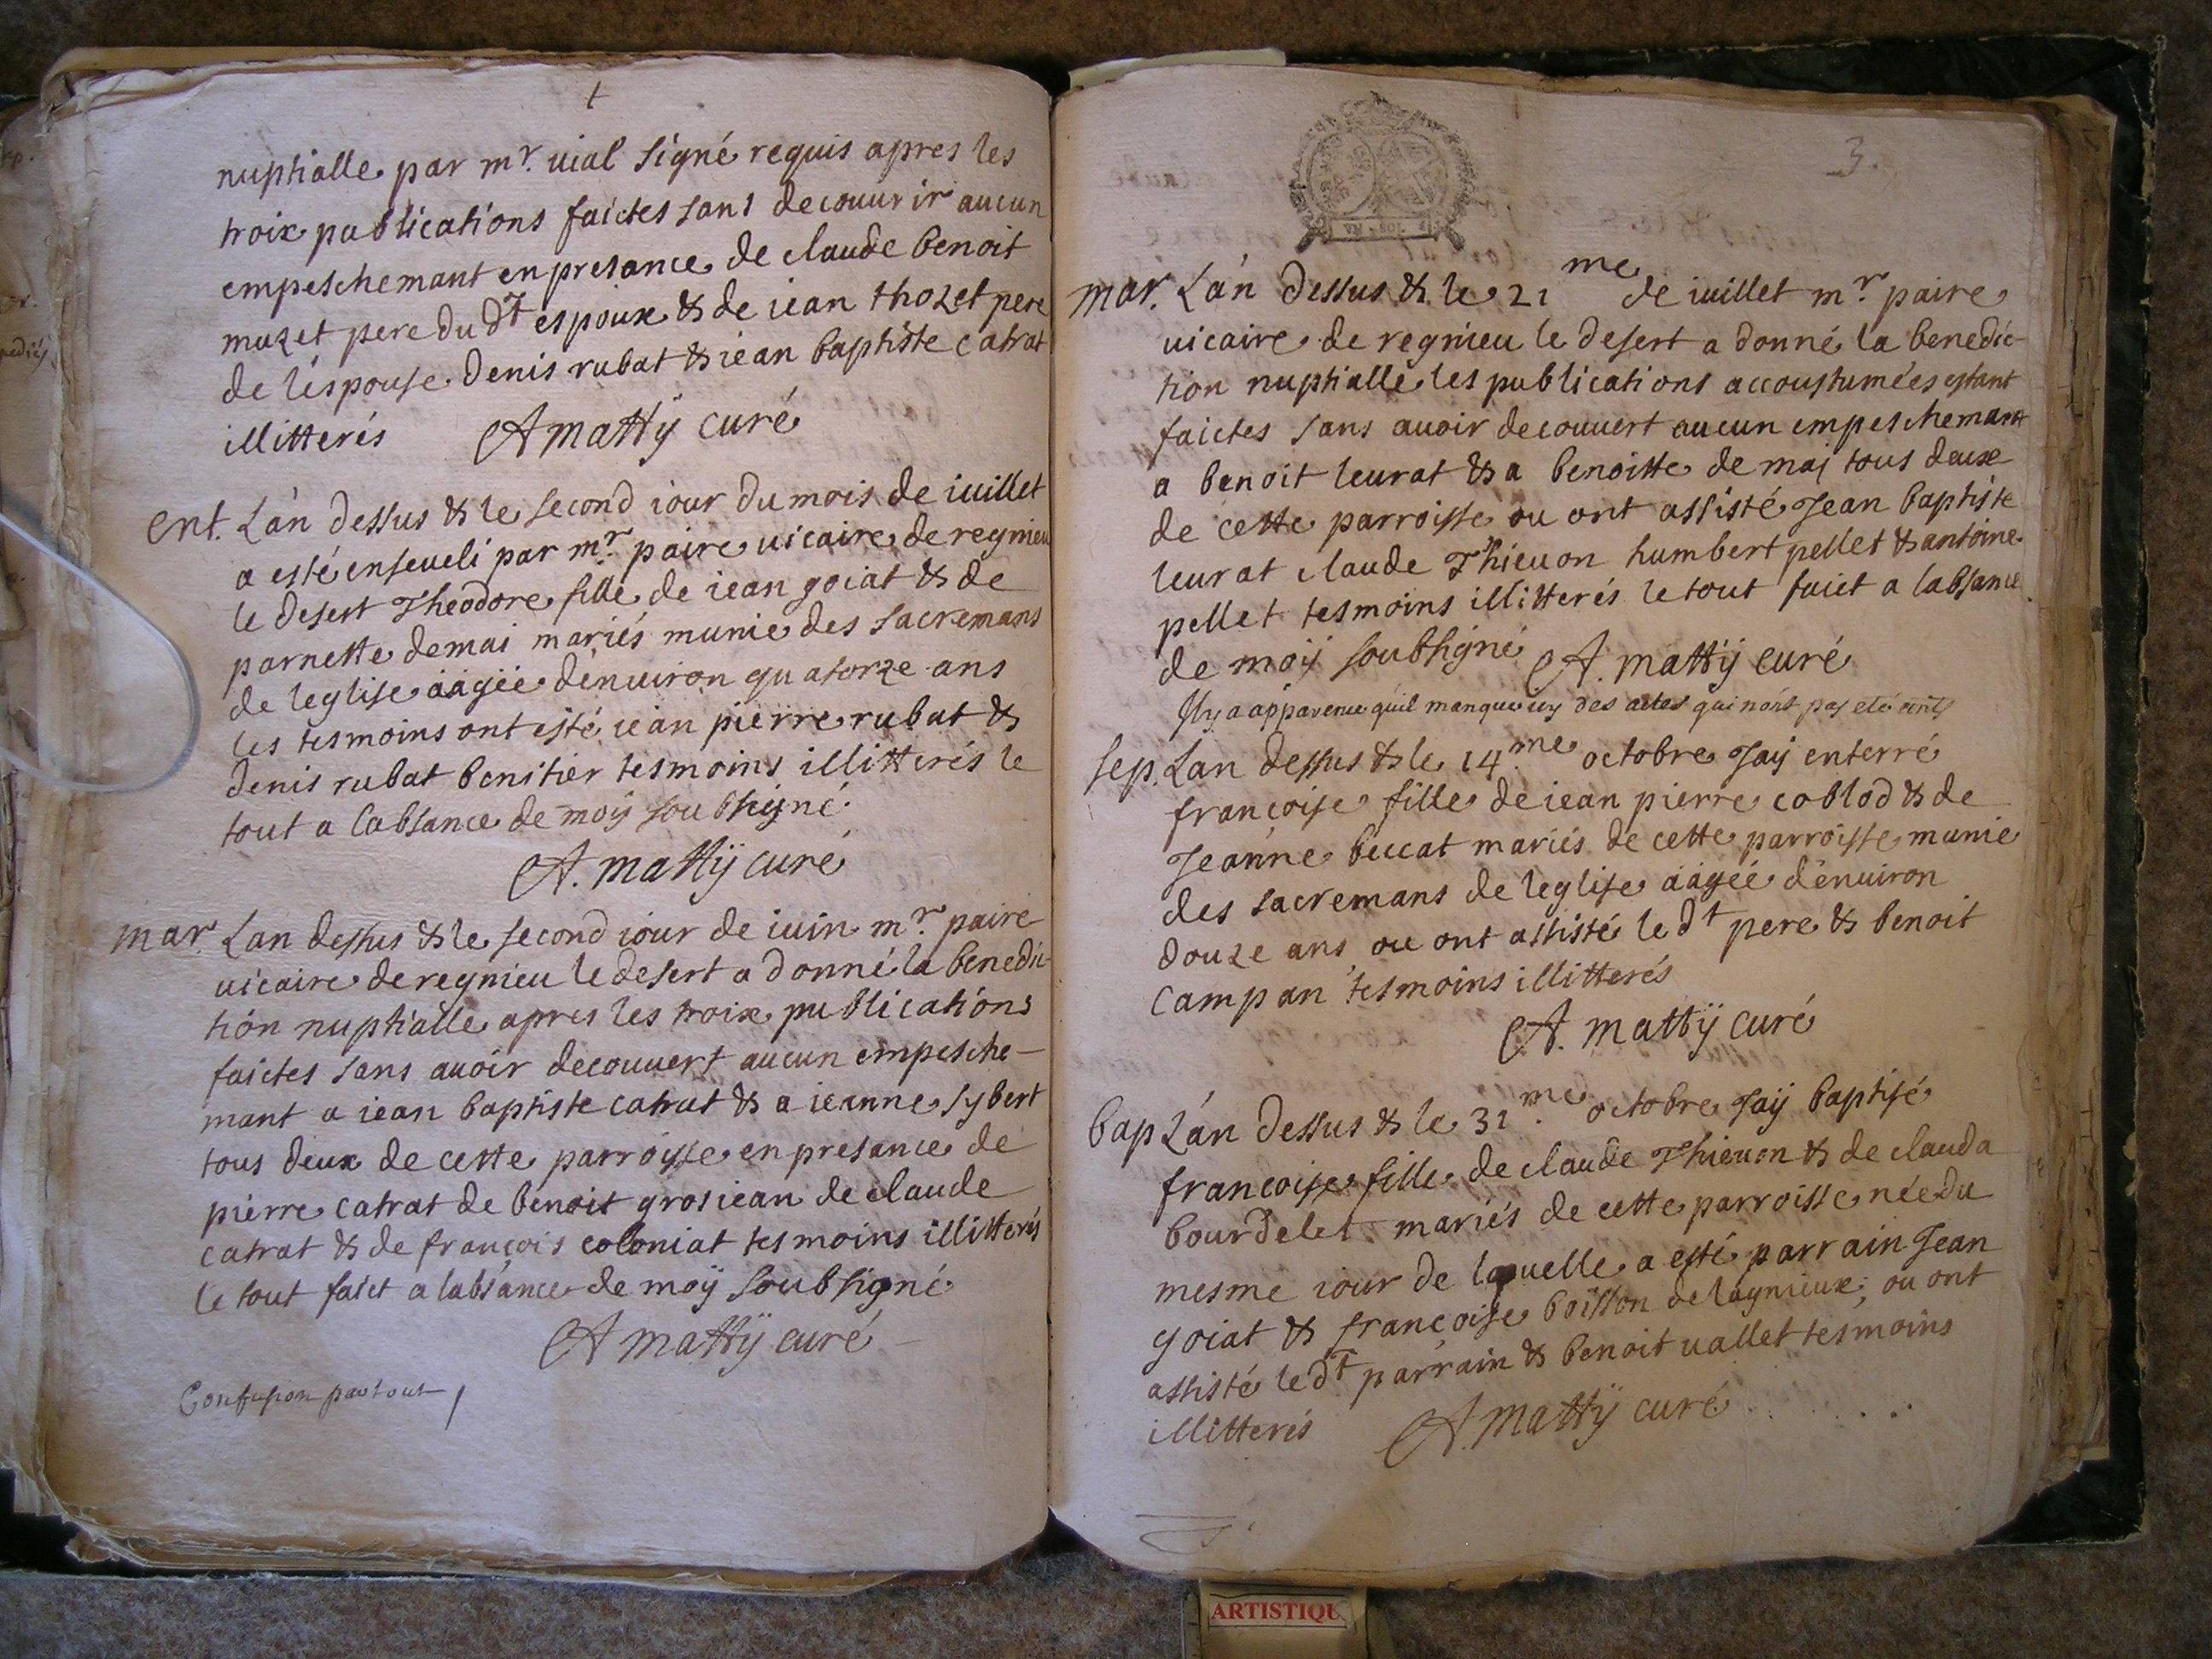 nuptialle par mr. uial signé requis apres les
troix publications faictes sans decouurir aucun
empeschemant en presance de claude benoit
muzet pere du dt espoux & de iean thozet pere
de l'espouse denis rubat & iean baptiste catrat
illitterés A mattÿ curé
ent. L'an dessus & le second iour du mois de iuillet
a esté enseueli par mr. paire uicaire de regnieu
le desert Theodore fille de iean goiat & de
parnette demai mariés munie des sacremans
de leglise aagée d'enuiron quatorze ans
les tesmoins ont esté iean pierre rubat &
denis rubat benitier tesmoins illitterés le
tout a labsance de moÿ soubsigné.
A. mattÿ curé
mar. Lan dessus & le second iour de iuin mr. paire
uicaire de regnieu le desert a donné la benedic-
tion nuptialle apres les troix publications
faictes sans auoir decouuert aucun empesche-
mant a iean baptiste catrat & a ieanne sybert
tous deux de cette parroisse en presance de
pierre catrat de benoit grosiean de claude
catrat & de françois coloniat tesmoins illitterés
le tout faict a labsance de moÿ soubsigné
A mattÿ curé
Confusion partout
3.
mar. L'an dessus & le 21me de iuillet mr. paire
uicaire de regnieu le desert a donné la benedic-
tion nuptialle les publications accoustumées estant
faictes sans auoir decouuert aucun empeschemant
a benoit leurat & a benoitte de mai tous deux
de cette parroisse ou ont assisté Jean baptiste
leurat claude Thieuon humbert pellet & antoine
pellet tesmoins illitterés le tout faict a labsance
de moÿ soubsigné A. mattÿ curé
Il y a apparence qu'il manque icy des actes qui n'ont pas eté
sep. Lan dessus & le 14.me octobre Jaÿ enterré
françoise fille de iean pierre coblod & de
Jeanne beccat mariés de cette parroisse munie
des sacremans de leglise aagée d'enuiron
douze ans ou ont assisté le dt pere & benoit
campan tesmoins illitterés
A. mattÿ curé
bap L'an dessus & le 31.me octobre Jaÿ baptisé
francoise fille de claude Thieuon & de clauda
bourdelet mariés de cette parroisse née du
mesme iour de laquelle a esté parrain Jean
goiat & françoise boisson de lagnieux; ou ont
assisté le dt parrain & benoit uallet tesmoins
illitterés A. mattÿ curé
ARTISTIQU